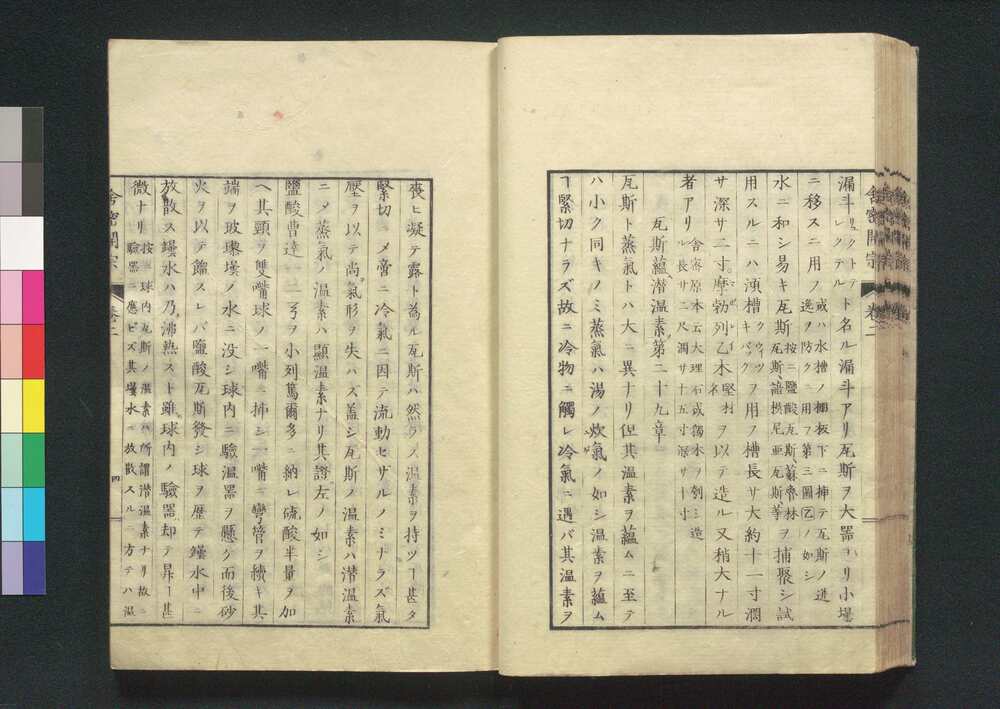 漏斗レクテルト名ル漏斗アリ瓦斯ヲ大器ヨリ小壜
ニ移スニ用フ或ハ水槽ノ棚板下ニ挿テ瓦斯ノ迸
逸ヲ防クニ用フ第三圖乙ノ如シ
水ニ和シ易キ瓦斯按ニ鹽酸瓦斯蘇魯林
瓦斯諳模尼亜瓦斯等ヲ捕聚シ試
用スルニハ澒槽ヲ用フ槽長サ大約十一寸濶
サ深サ二寸摩勃列乙木堅材
名ヲ以テ造ル又稍大ナル
者アリ舎密原本云大理石或獨木ヲ刳シ造
ル長サ二尺濶サ十五寸深サ十寸
瓦斯蘊潜温素第二十九章
瓦斯ト蒸氣トハ大ニ異ナリ但其温素ヲ蘊ムニ至テ
ハ小ク同キノミ蒸氣ハ湯ノ炊氣ノ如シ温素ヲ蘊ム
ヿ緊切ナラズ故ニ冷物ニ觸レ冷氣ニ遇バ其温素ヲ
舎密開宗 卷二
喪ヒ凝テ露ト為ル瓦斯ハ然ラズ温素ヲ持ツヿ甚タ
緊切ニメ啻ニ冷氣ニ因テ流動セザルノミナラズ氣
壓ヲ以テ尚氣形ヲ失ハズ盖シ瓦斯ノ温素ハ潜温素
ニメ蒸氣ノ温素ハ顯温素ナリ其證左ノ如シ
鹽酸曹達一弓ヲ小列篤爾多ニ納レ硫酸半量ヲ加
ヘ其頸ヲ雙嘴球ノ一嘴ニ挿シ一嘴ニ彎管ヲ續キ其
端ヲ玻瓈壜ノ水ニ没シ球内ニ驗温器ヲ懸ケ而後砂
火ヲ以テ餾スレバ鹽酸瓦斯發シ球ヲ歴テ罎水中ニ
放散ス罎水ハ乃沸熱スト雖球内ノ驗器却テ昇ヿ甚
微ナリ按ニ球内瓦斯ノ温素ハ所謂潜温素ナリ故ニ
驗器ニ應ビズ其罎水ニ放散スルニ方テハ温
舎密開宗 卷二 四